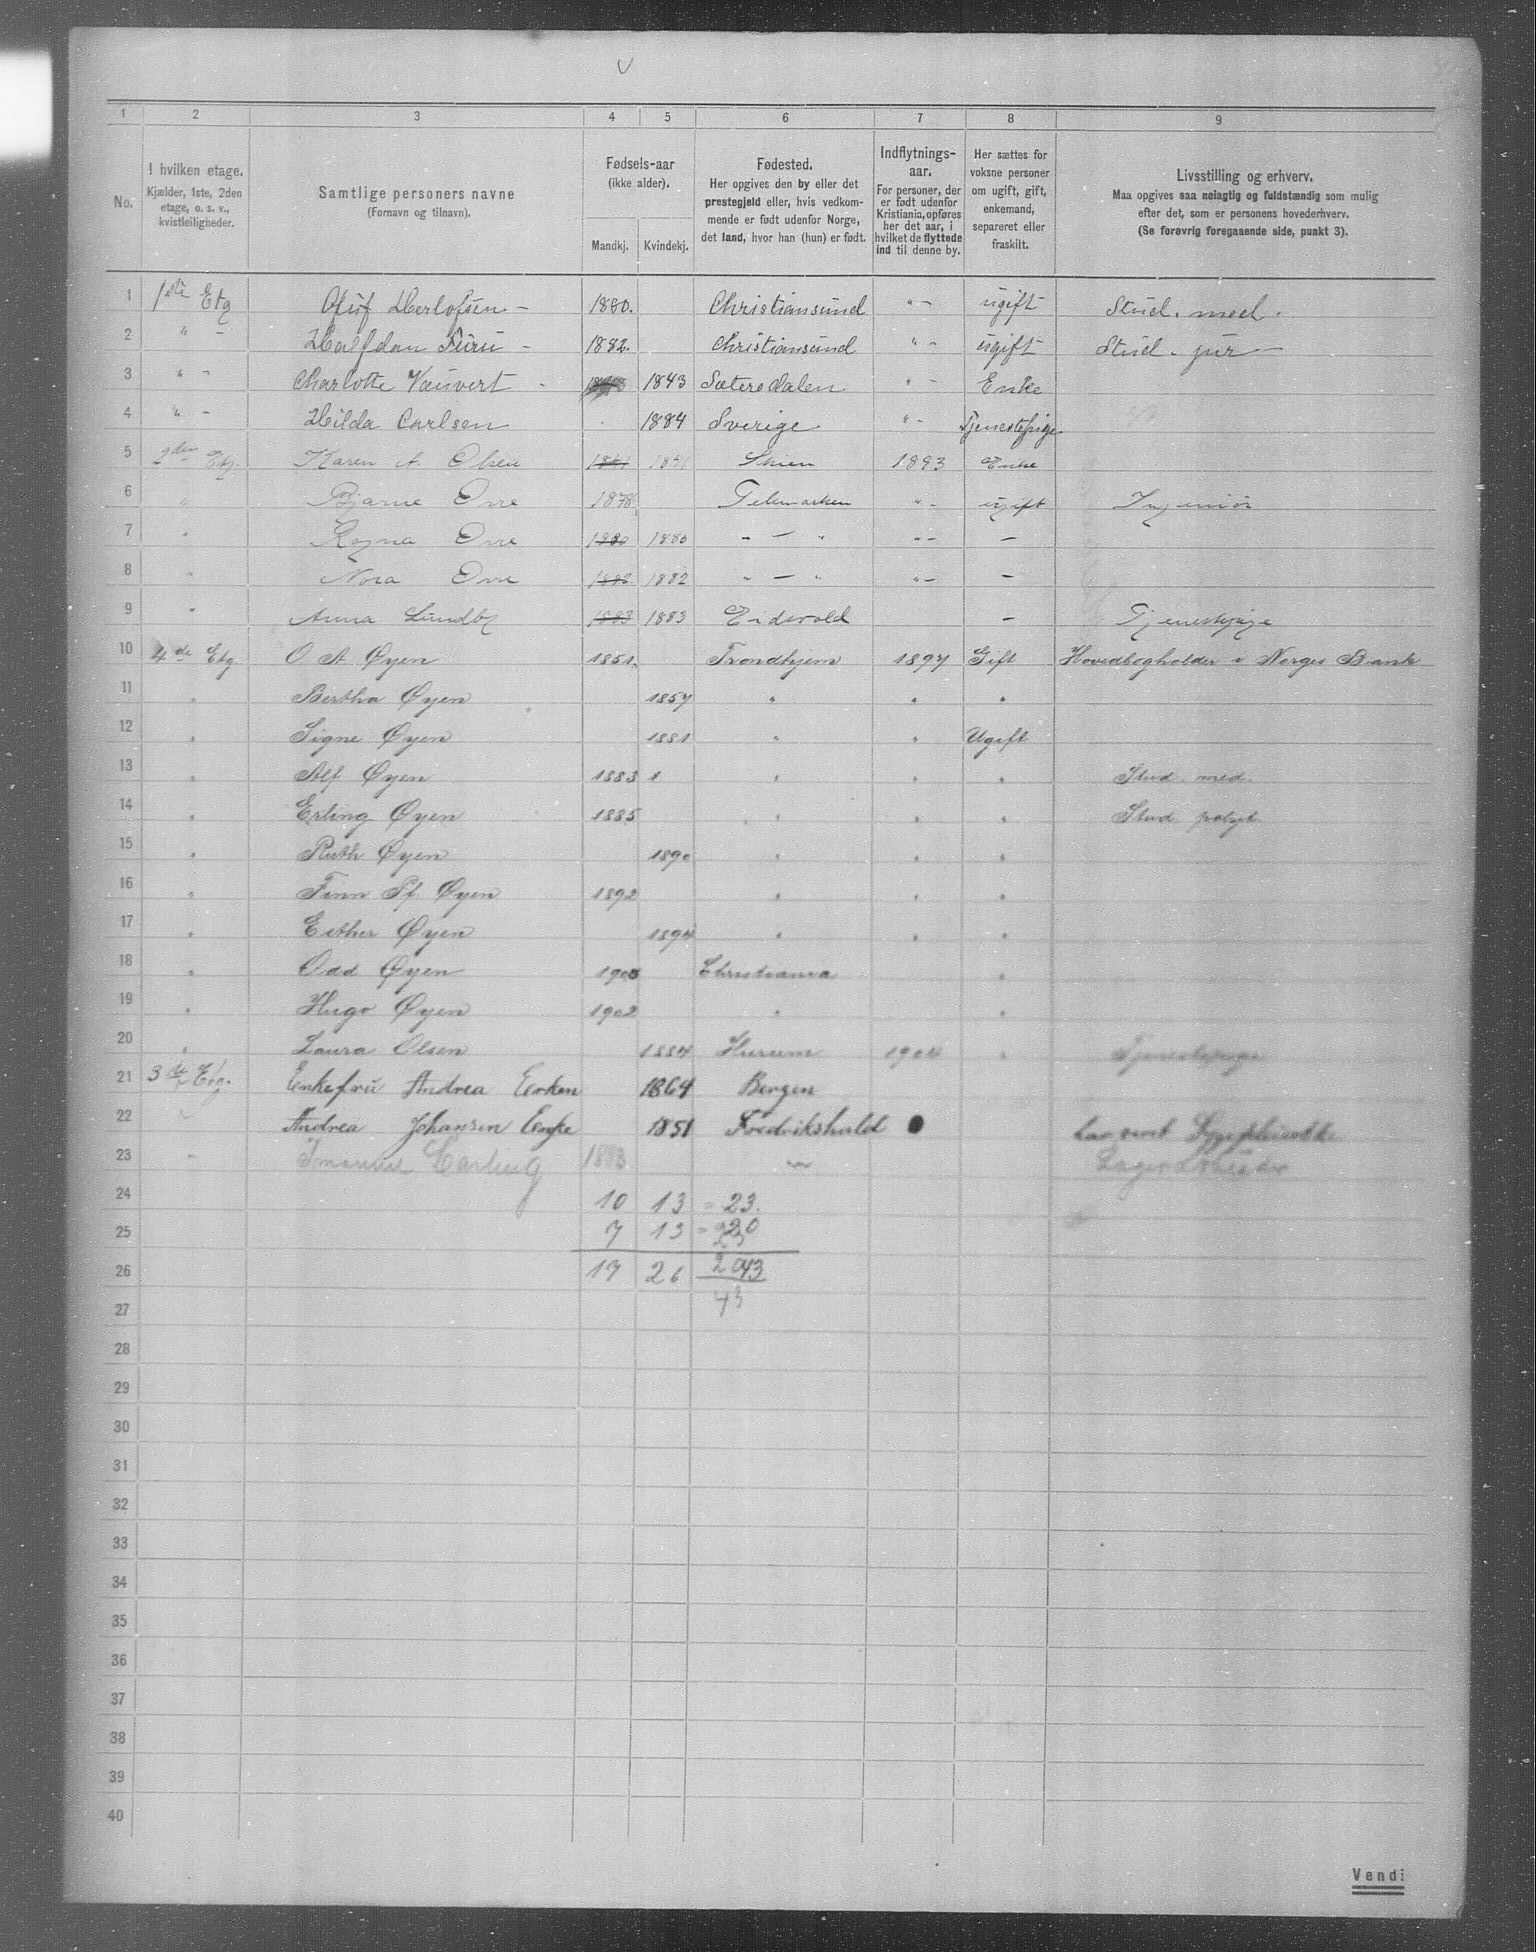 1 2 3 4 5 6 7 8 9
No. I hvilken etage. Kjælder, 1ste, 2den etage, o. s. v., kvistleiligheder. Samtlige personers navne (Fornavn og tilnavn). Fødsels-aar (ikke alder). Mandkj. Kvindekj. Fødested. Her opgives den by eller det prestegjeld eller, hvis vedkommende er født udenfor Norge, det land, hvor han (hun) er født. Indflytnings-aar. For personer, der er født udenfor Kristiania, opføres her det aar, i hvilket de flyttede ind til denne by. Her sættes for voksne personer om ugift, gift, enkemand, separeret eller fraskilt. Livsstilling og erhverv. Maa opgives saa nøiagtig og fuldstændig som mulig efter det, som er personens hovederhverv. (Se forøvrig foregaaende side, punkt 3).
1 1ste Etg Oluf Herlofsen - 1880. Christiansund " - ugift Stud. med.
2 " - Halfdan Furu - 1882. Christiansund " - ugift Stud. jur -
3 " - Charlotte Vauvert - 1843 Sætersdalen " - Enke
4 " - Hilda Carlsen 1884 Sverige " - Tjenestepige
5 2den Etg. Karen A. Olsen Skien 1893 Enke
6 " Bjarne Orre 1878 Telemarken " - ugift Ingeniør
7 " Ragna Orre 1880 1880 " - " " - -
8 " Nora Orre 1882 1882 " - " " - -
9 " Anna Lundby 1883 1883 Eidsvold - Tjenestepige
10 4de Etg O A Øyen 1851. Trondhjem 1897 Gift Hovedbogholder i Norges Bank
11 " Bertha Øyen 1857 " " "
12 " Signe Øyen 1881 " " Ugift
13 " Alf Øyen 1883 1 " " " Stud. med.
14 " Erling Øyen 1885 " " " Stud polyt.
15 " Ruth Øyen 1890 " " "
16 " Finn Sf. Øyen 1892 " " "
17 " Esther Øyen 1894 " " "
18 " Odd Øyen 1900 Christiania "
19 " Hugo Øyen 1902 " "
20 " Laura Olsen 1884 Hurum 1904 " Tjenestepige
21 3de Etg. Enkefru Andrea Eerken 1864 Bergen
22 " Andrea Johansen Enke 1851 Fredrikshald har været
23 " Carling 1883 "
24 10 13 = 23.
25 7 13 = 20 23
26 17 26 20 43
27 43
28
29
30
31
32
33
34
35
36
37
38
39
40
Vend!